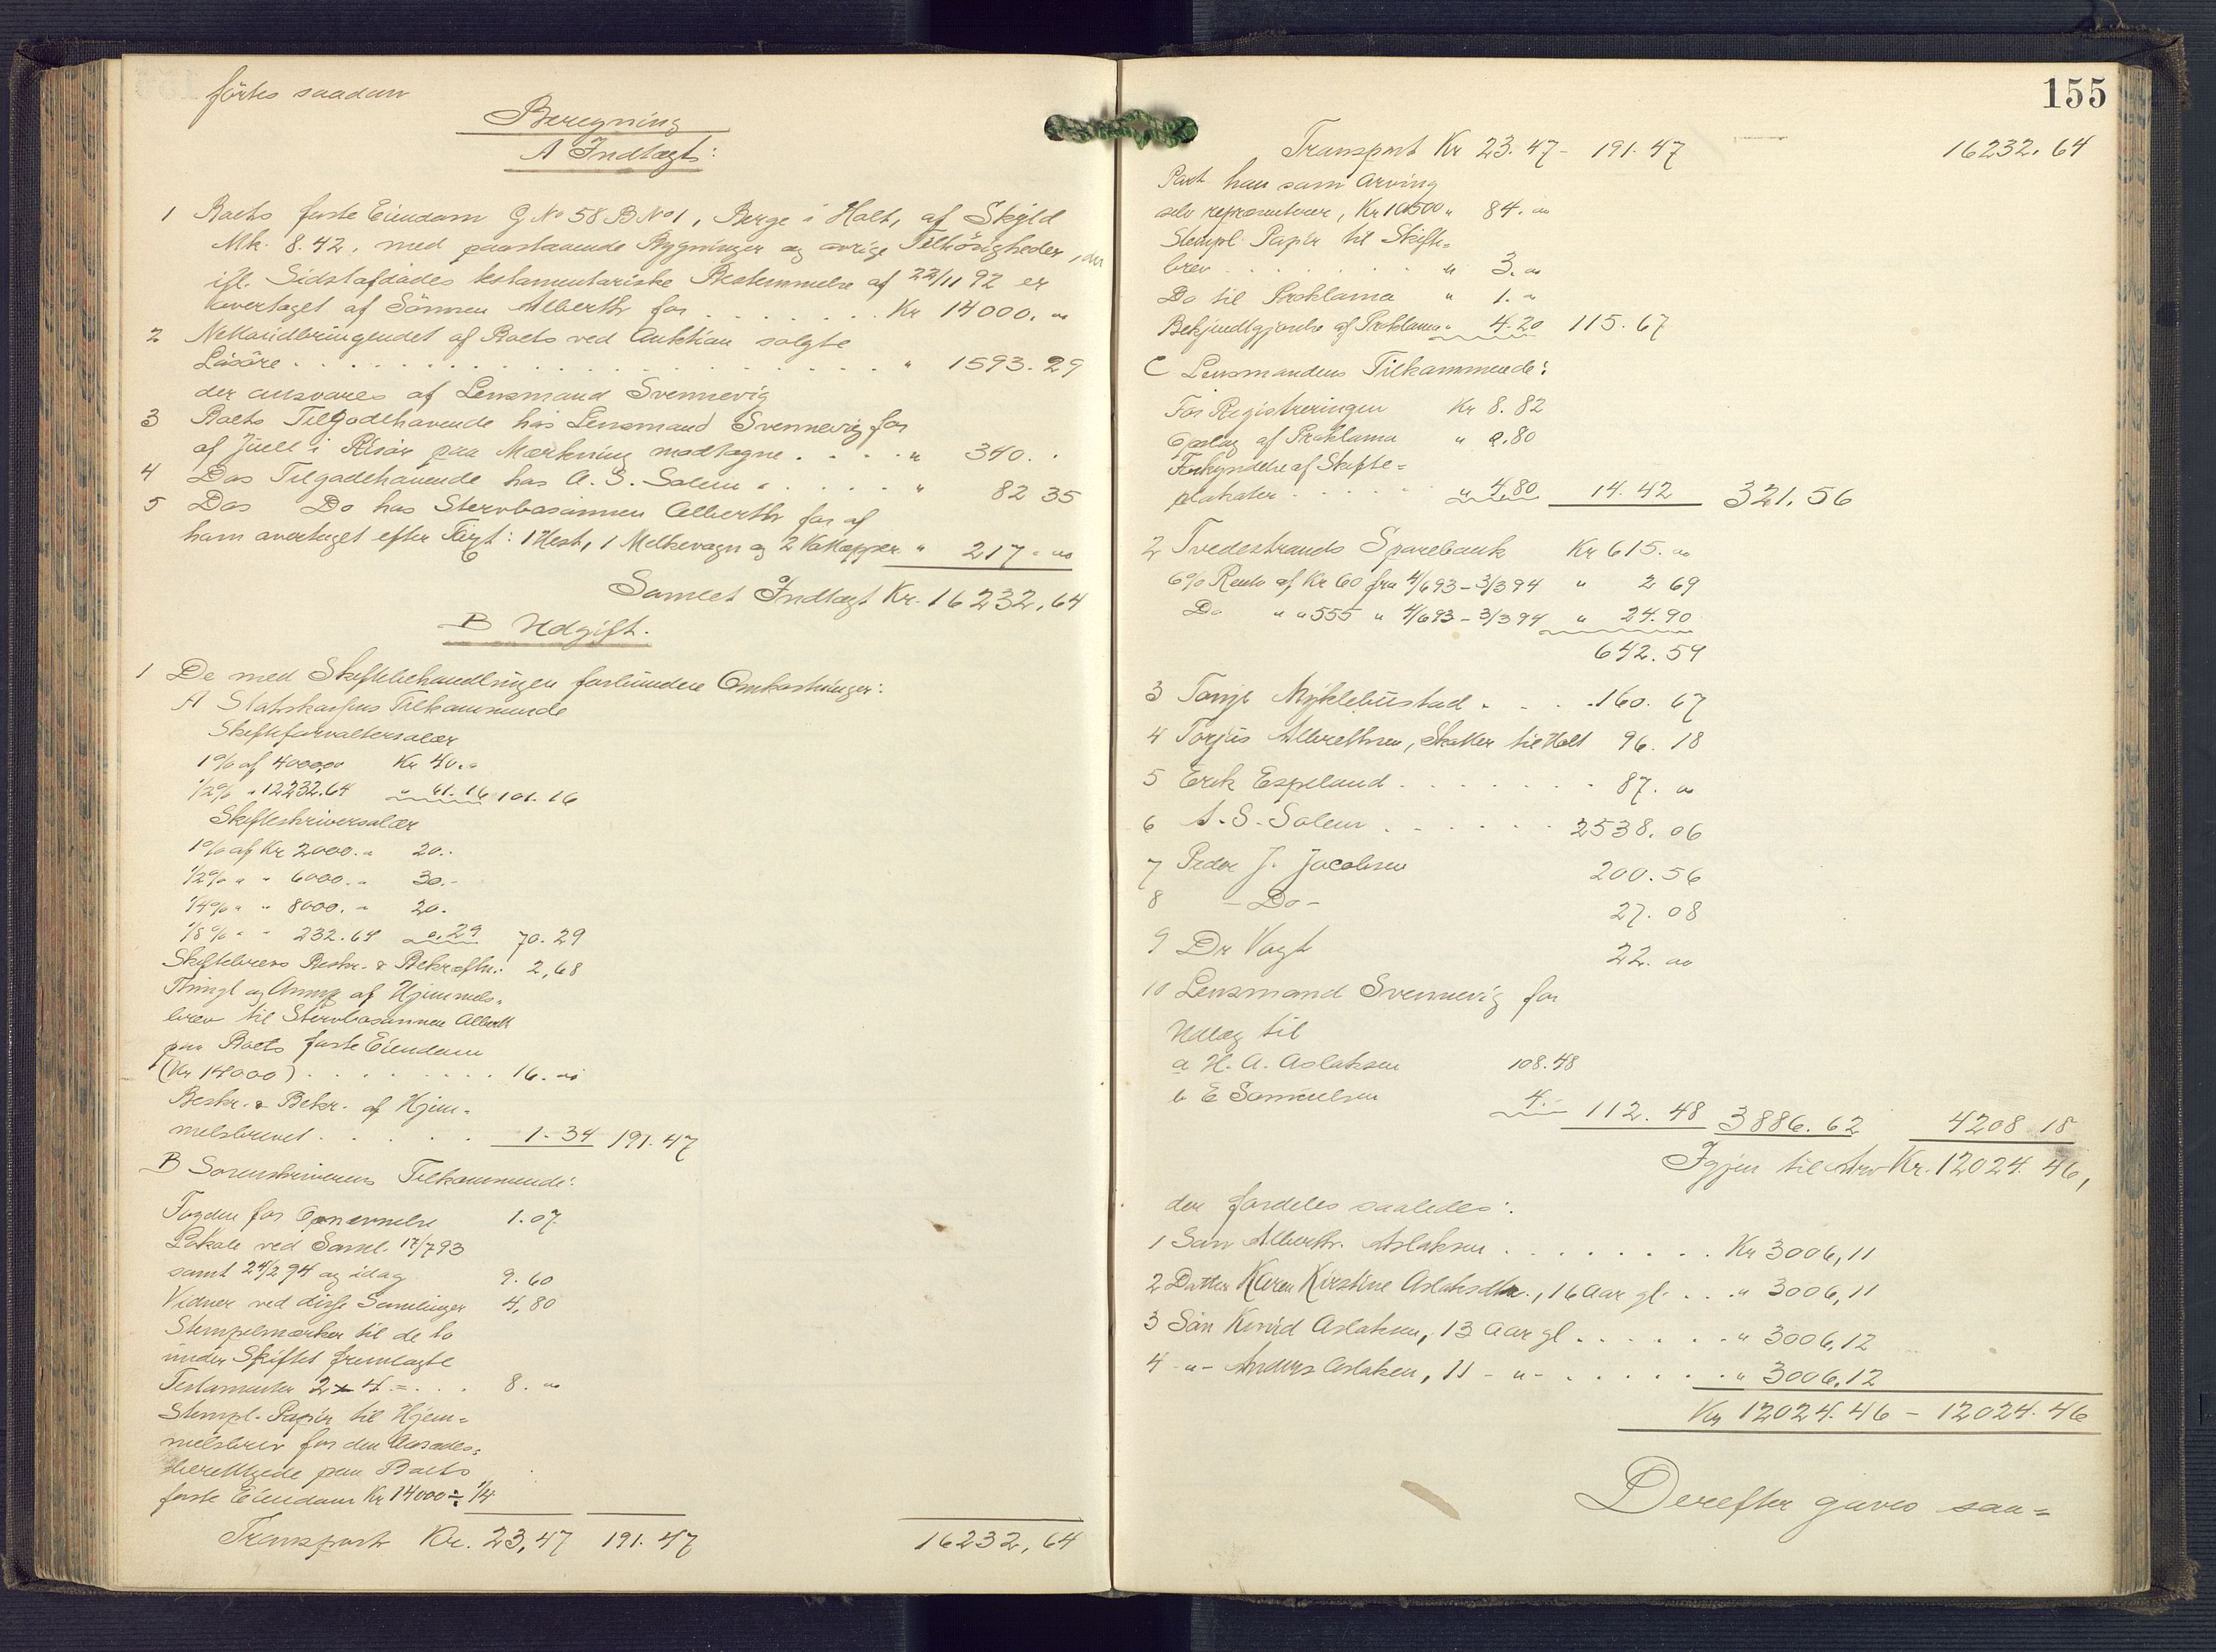 førtes saadan
Beregning
A Indtægt:
1 Boets faste Eiendom G No 58 B No 1, Berge i Holt, af Skyld
Mk. 8.42, med paastaaende Bygninger og øvrige Tilhørigheder, der
ifl. Sidstafdødes testamentariske Bestemmelse af 22/11 92 er
overtaget af Sönnen Alberth for . . . . . . . Kr 14000. "
2 Nettoindbringendet af Boets ved Auktion solgte
Løsøre . . . . . . . . . . . . . . . . " 1593.29
der ansvares af Lensmand Svennevig
3 Boets Tilgodehavende hos Lensmand Svennevig for
af Juell i Risør paa Mærkning modtagne . . . . " 340. .
4 Dos Tilgodehavende hos A. S. Solem . . . . . " 82 35
5 Dos Do hos Stervbosönnen Alberth for af
ham overtaget efter Taxt: 1 Hest, 1 Melkevogn og 2 " 217. "
Samlet Indtægt Kr. 16232,64
B Udgift.
1 De med Skiftebehandlingen forbundne Omkostninger:
A Statskassens Tilkommende
Skifteforvaltersalær
1% af 4000,00 Kr 40. "
1/2% " 12232.64 " 61.16 101.16
Skifteskriversalær
1% af Kr 2000. " 20. "
1/2% " " 6000. " 30. -
1/4% " " 8000. " 20.
1/8% " " 232.64 0.29 70.29
Skiftebrevs Beskr. & Bekræftn.: 2,68
Thingl og Anmg af Hjemmels-
brev til Stervbosønnen Alberth
paa Boets faste Eiendom
(Kr 14000) . . . . . . . 16. "
Beskr. & Bekr. af Hjem-
melsbrevet . . . . . 1.34 191.47
B Sorenskriverens Tilkommende:
Fogden for Opnævnelse 1.07
Lokale ved Saml. 17/7 93
samt 24/2 94 og idag 9.60
Vidner ved disse Samlinger 4,80
Stempelmærker til de to
under Skiftet fremlagte
Testamenter 2 x 4 = . . . 8. "
Stempl. Papir til Hjem-
melsbrev for den Aasædes-
berettigede paa Boets
faste Eiendom Kr 14000 ÷ 1/4
Transport Kr. 23,47 191.47 16232,64
155
Transport Kr 23.47 - 191.47 16232.64
Part han som Arving
selv repræsenterer, Kr 10500 " 84. "
Stempl. Papir til Skifte-
brev . . . . . . . " 3. "
Do til Proklama " 1. "
Bekjendtgjørelse af Proklama " 4.20 115.67
C Lensmandens Tilkommende:
For Registreringen Kr 8.82
Opslag af Proklama " 0.80
Forkyndelse af Skifte-
plakater . . . . . " 4.80 14.42 321,56
2 Tvedestrands Sparebank Kr 615. "
6% Rente af Kr 60 fra 4/6 93 - 3/3 94 " 2 69
Do " " 555 " 4/6 93 - 3/3 94 " 24.90
642.59
3 Tonje Myklebustad . . . . 160.67
4 Torjus Albrethsen, Skatter til Holt 96.18
5 Erik Espeland . . . . . . . 87. "
6 A. S. Solem . . . . . . 2538.06
7 Peder J. Jacobsen 200.56
8 - Do - 27.08
9 Dr Vogt 22. "
10 Lensmand Svennevig for
Udlæg til
a H. A. Aslaksen 108.48
b E Samuelsen 4. - 112.48 3886.62 4208 18
Igjen til Arv Kr. 12024.46,
der fordeles saaledes:
1 Søn Alberth Aslaksen . . . . . . . . Kr 3006,11
2 Datter Karen Kirstine Aslaksdtr., 16 Aar gl. . . " 3006,11
3 Søn Aslaksen, 13 Aar gl . . . . . . " 3006,12
4 - " - Anders Aslaksen, 11 - " - . . . . . . " 3006,12
Kr 12024.46 - 12024.46
Derefter gaves saa-